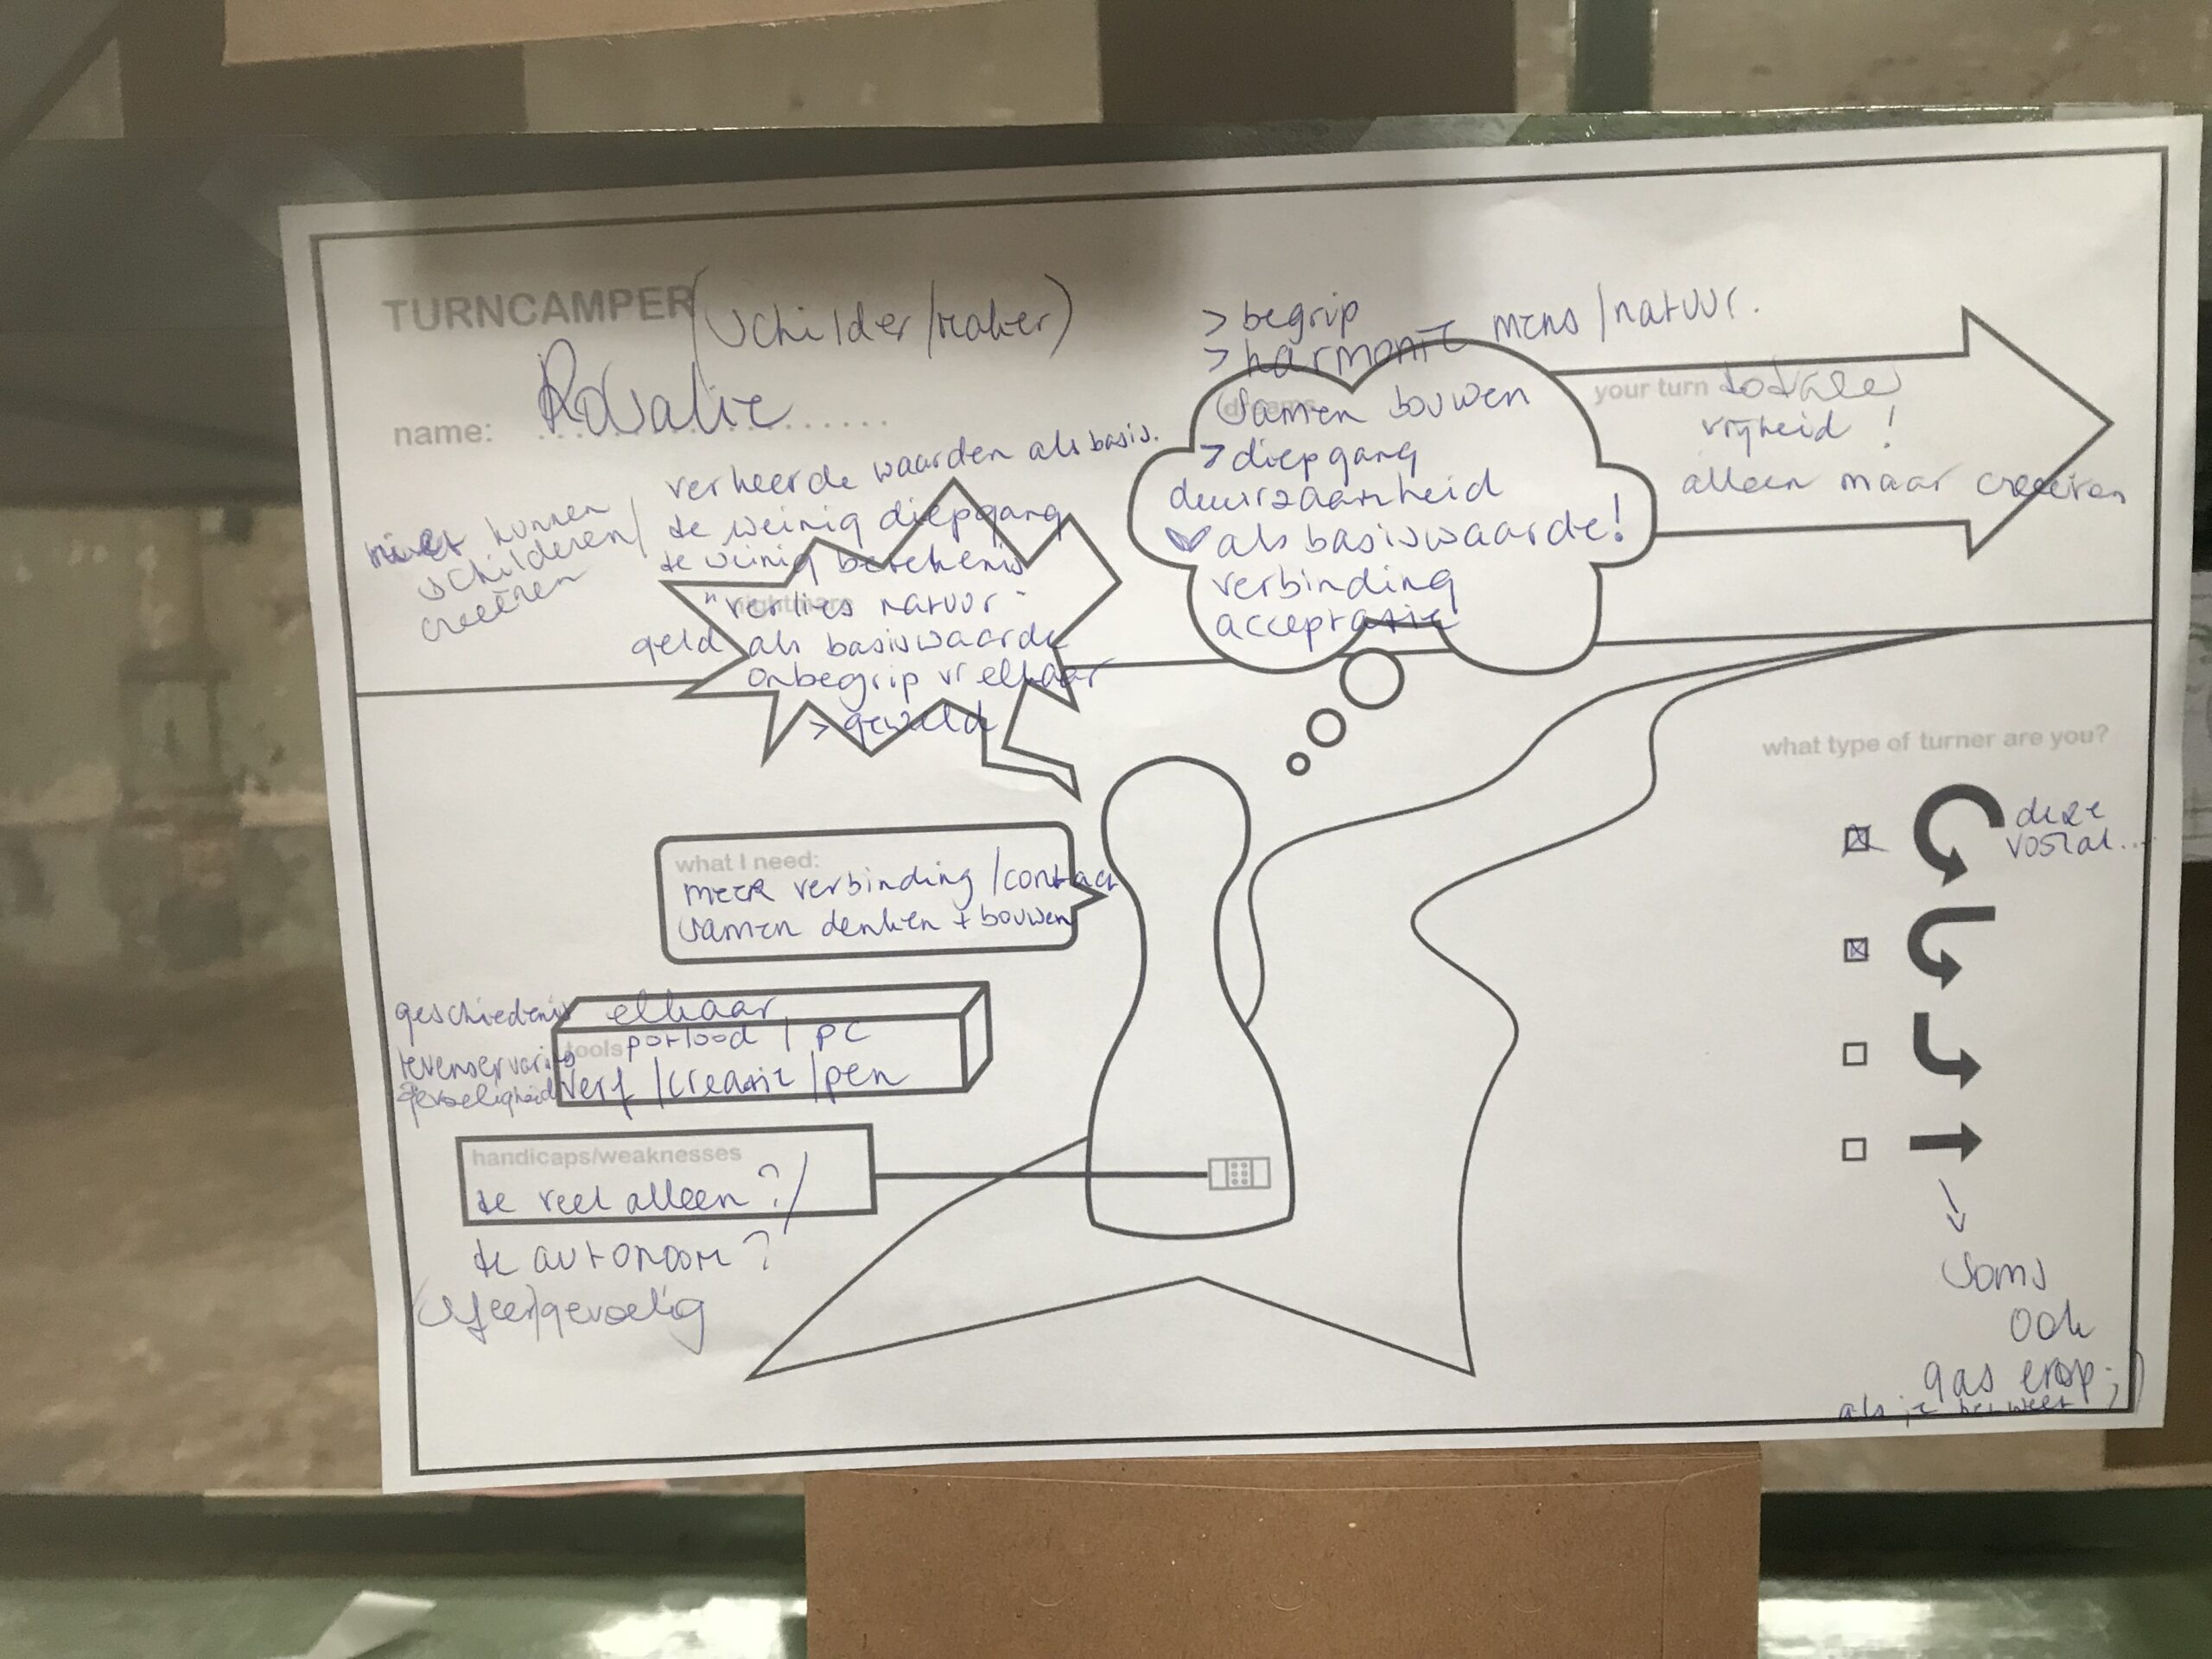 TURNCAMPER (schilder/maker)
name: Rosalie
niet kunnen
schilderen/
creeëren
verkeerde waarden als basis.
te weinig diepgang
te weinig betekenis
nightmare
"verlies natuur"
geld als basiswaarde
onbegrip vr elkaar
> geweld
> begrip
> harmonie mens/natuur.
dreams
samen bouwen
> diepgang
duurzaamheid
als basiswaarde!
verbinding
acceptatie
your turn totale
vrijheid!
alleen maar creëeren
what I need:
meer verbinding/contact
samen denken + bouwen
geschiedenis
levenservaring
gevoeligheid
elkaar
tools potlood / pc
verf /creatie /pen
handicaps/weaknesses
te veel alleen?/
te autonoom?
(sfeer)gevoelig
what type of turner are you?
deze
vooral...
soms
ook
gas erop ;)
als je het weet